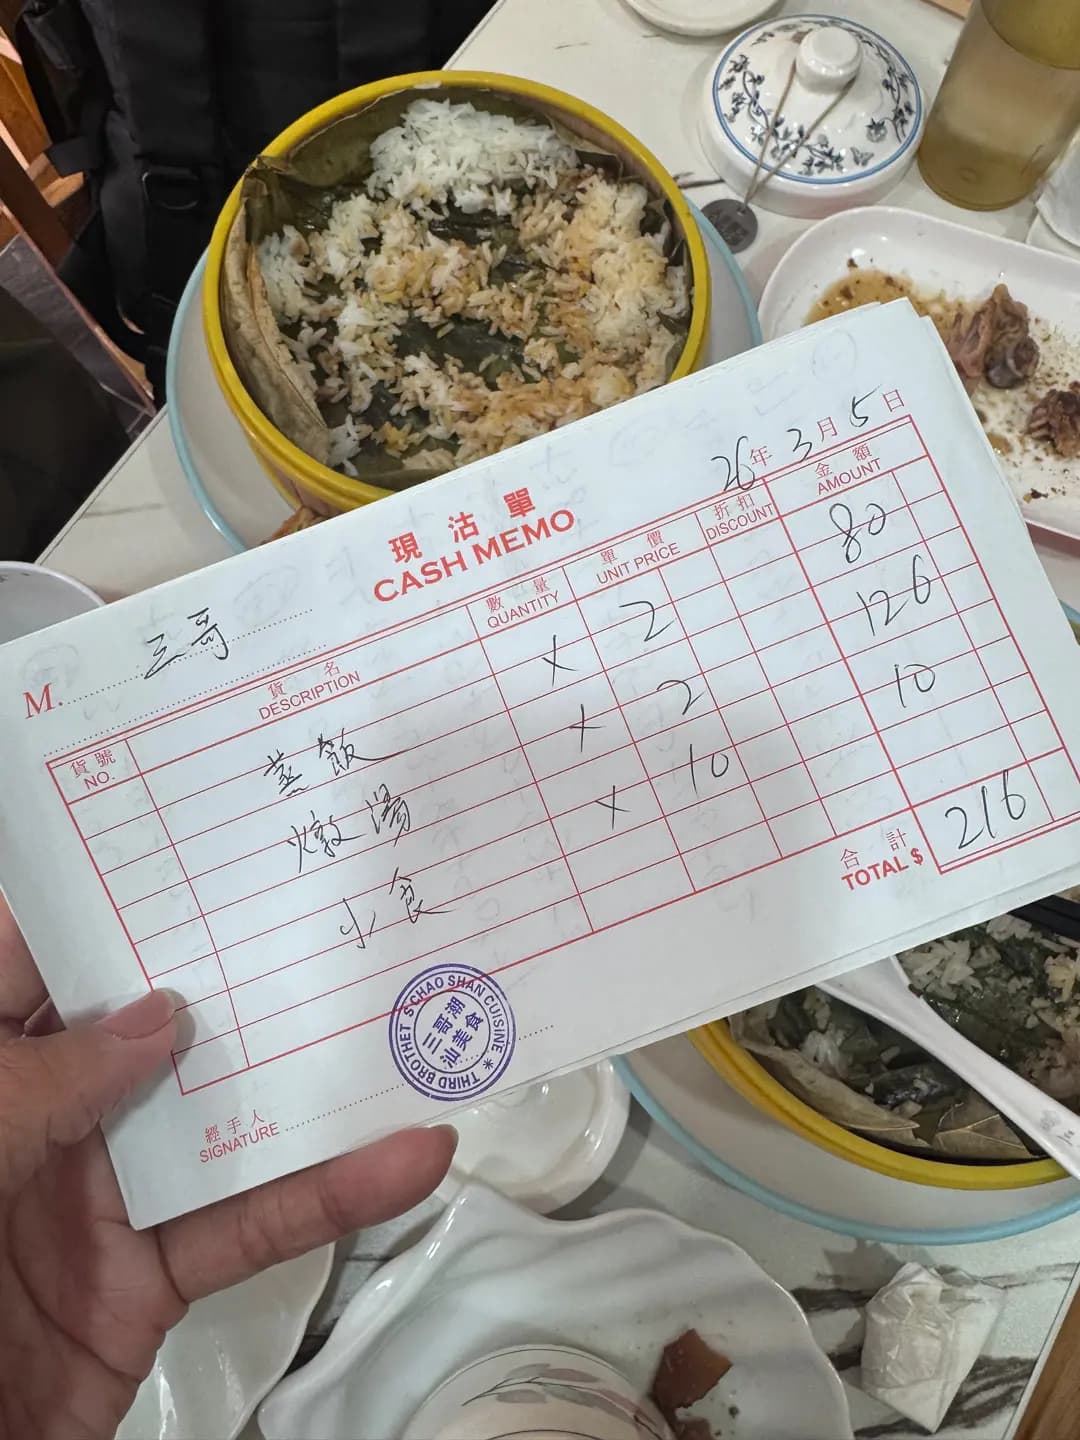 26年 3月 5日
現沽單
CASH MEMO
M. 三哥
貨號 NO. 貨名 DESCRIPTION 數量 QUANTITY 單價 UNIT PRICE 折扣 DISCOUNT 金額 AMOUNT
蒸飯 × 2 80
燉湯 × 2 126
小食 × 10 10
合計 TOTAL $ 216
THIRD BROTHET S CHAO SHAN CUISINE *
三哥潮汕美食
經手人
SIGNATURE